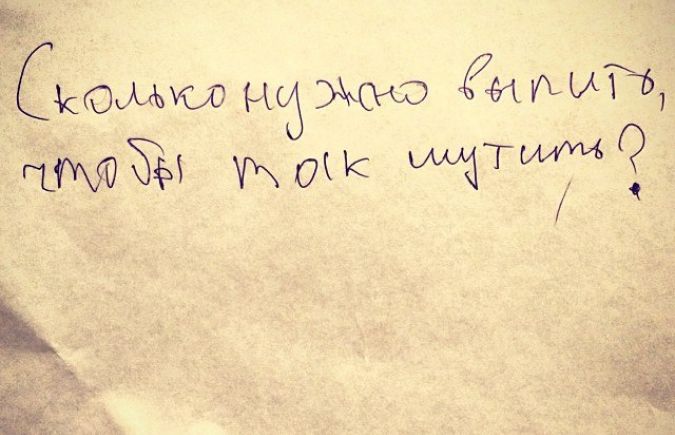 Сколько нужно выпить,
чтобы так шутить?